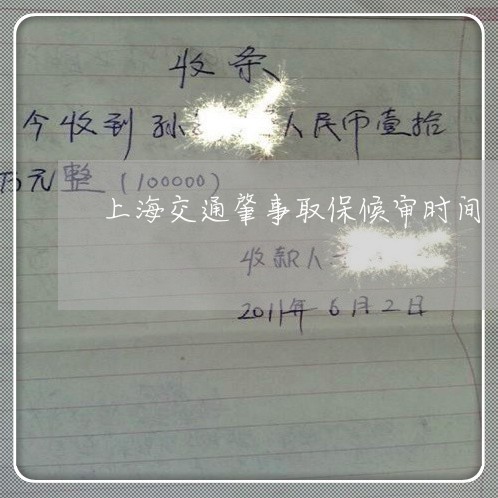 收条
今收到孙 人民币壹拾
万元整（100000）
上海交通肇事取保候审时间
收款人
2011年6月2日